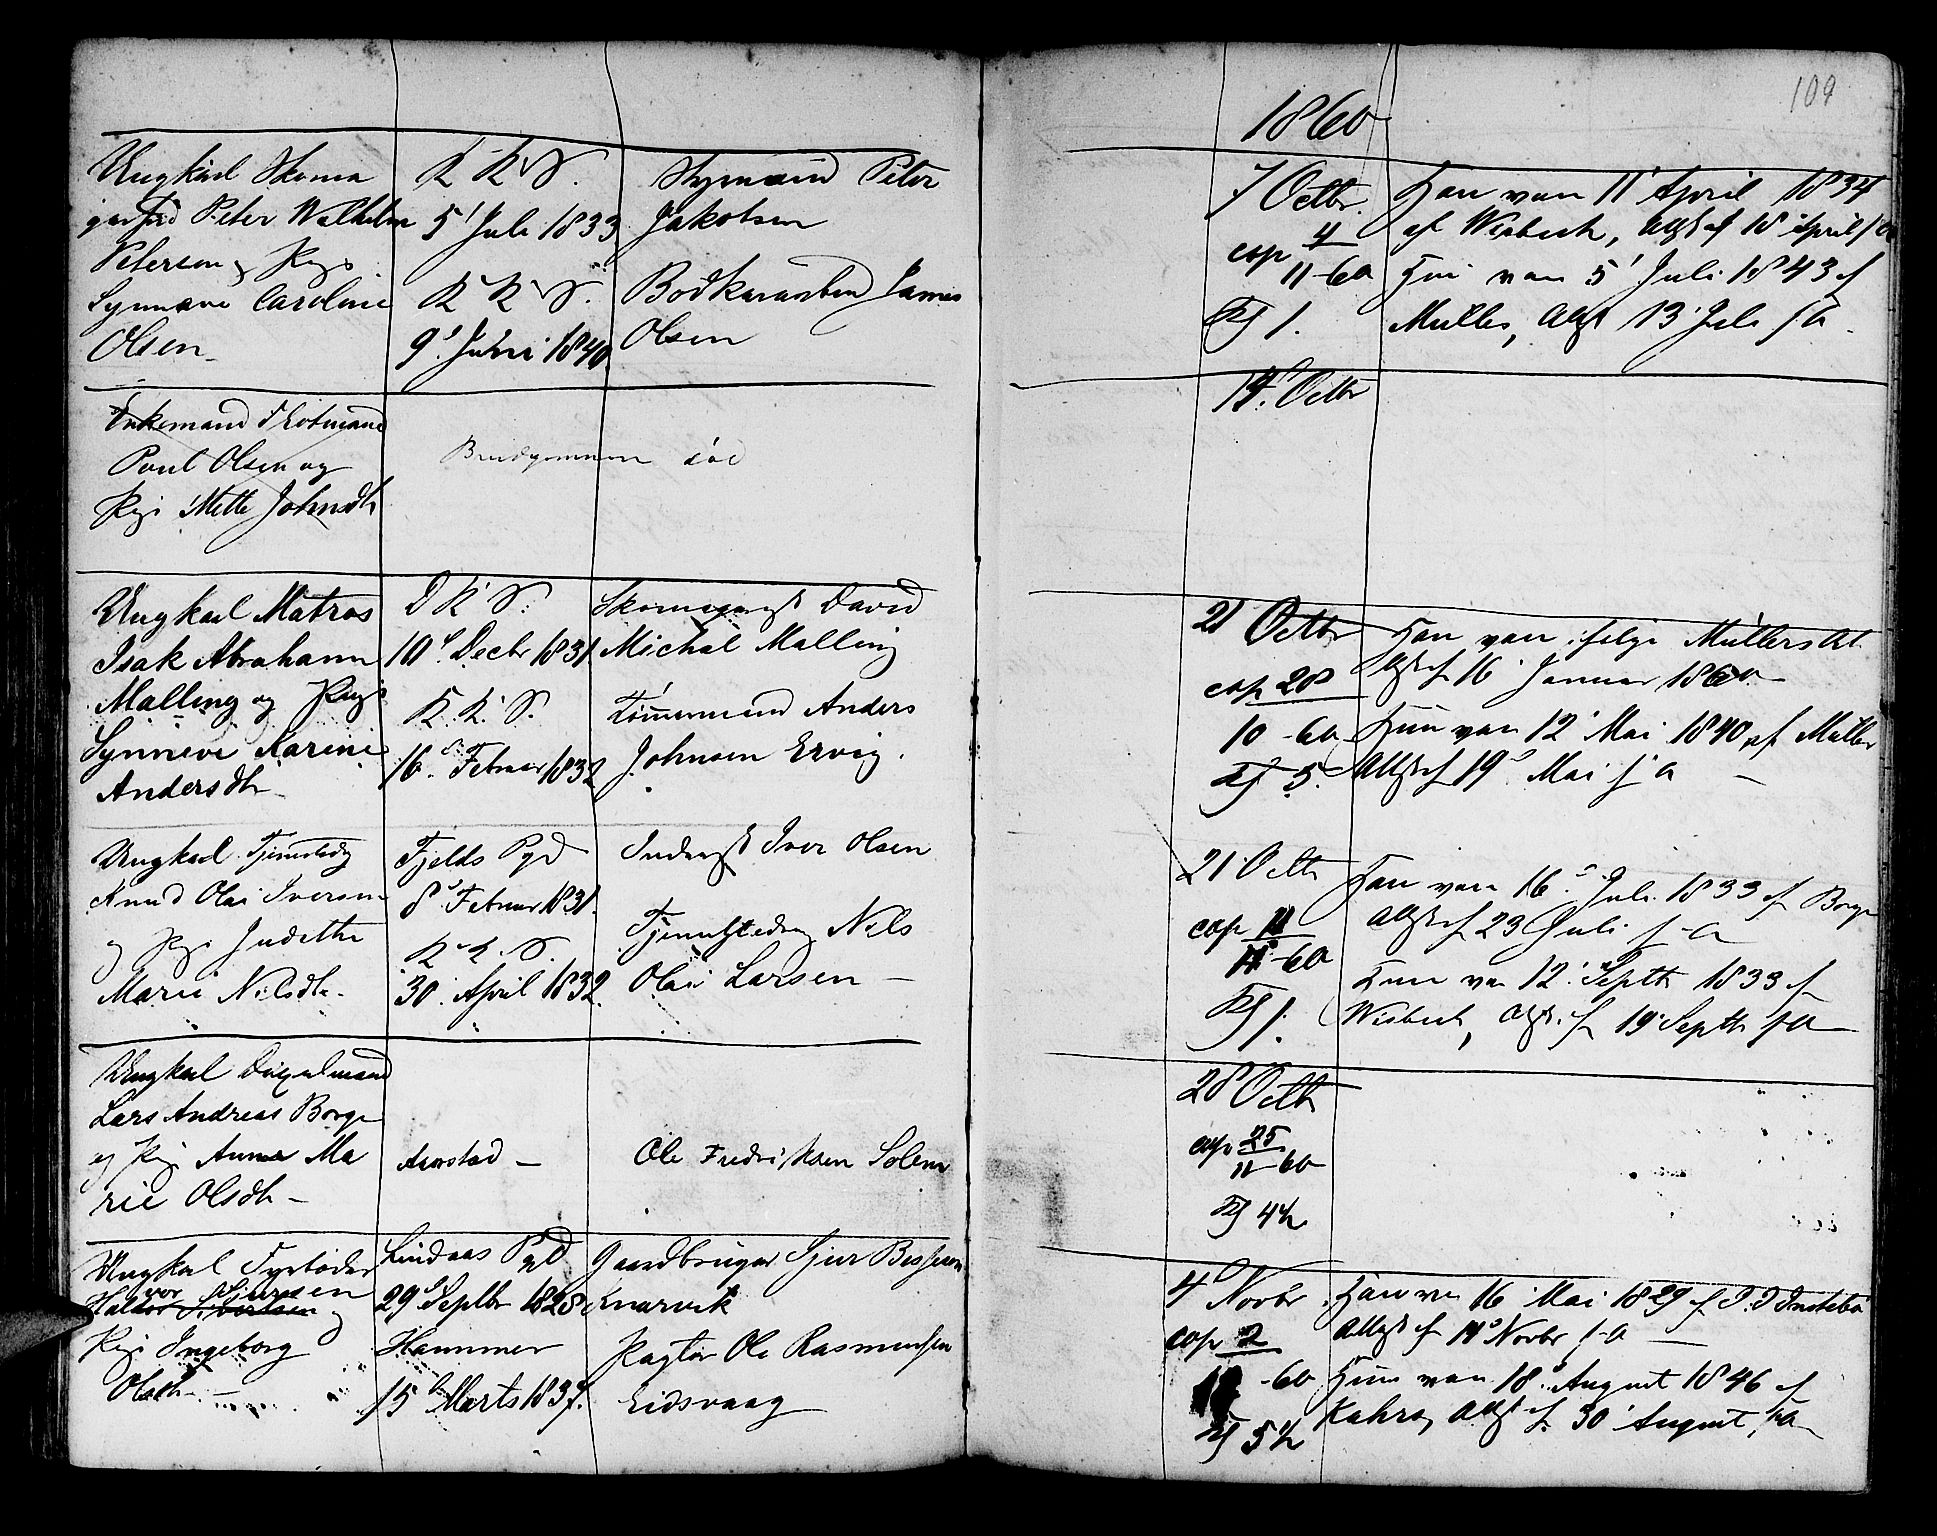 109
1860
Ungkarl Skoma
gersvd Peter Wilhelm
Petersen og Pige
Synnæve Caroline
Olsen
K K S.
5' Juli 1833
K K S.
9' Juni 1840
Peter
Jakobsen
Bødkersvend James
Olsen
7 Octbr.
cop 4
11-60
Kl 1.
Han vac 11' April 1834
af Wisbech, Attst af 18 April s. a
Hun vac 5' Juli 1843 af
Müller, Attst 13' Juli s a
Enkemand
Poul Olsen og
Pige Mette Johnsdtr
Brudgommen död
14. Octbr
Ungkarl Matros
Isak Abraham
Malling og Pige
Synneve Karine
Andersdtr
D K S.
10' Decbr 1831
K. K. S.
16. Februar 1832
David
Michal Malling
Tömmermand Anders
Johnsen Ervig.
21 Octbr
cop 28
10-60
Kl 5.
Han vac. ifölge Müllers At.
Attst af 16 Januar 1860
Hun vac 12' Mai 1840 af Müller
Attst af 19' Mai s. a
Ungkarl
Knud Olai Iversen
og Pige Judithe
Marie Nilsdtr.
Fjelds Pgd
8' Februar 1831.
K. K. S.
30. April 1832.
Inderst Iver Olsen
Nils
Olai Larsen
21 Octbr
cop 11
11-60
Kl 1.
Han vac 16. Juli 1833 af Borge
Attst af 23 Juli s. a
Hun vac 12. Septbr 1833 af
Wisbech, Attst. af 19 Septbr s. a
Ungkarl
Lars Andreas Borge
og Pige Anna Ma
rie Olsdtr
Aarstad
Ole Fredriksen Solem
28 Octbr
cop 25
11-60
Kl 4½
Ungkarl
var Sjursen
og
Pige Ingeborg
Olsdtr
Lindaas Pgd
29' Septbr 1828
Hammer
15' Marts 1837.
Gaardbruger Sjur
Knarvik
Ole Rasmussen
Eidsvaag
4' Novbr
cop 2
-60
Kl 5½
Han vac 16 Mai 1829 af
Attst af 14' Novbr s. a
Hun vac 18' August 1846 af
Kahrs, Attst af 30' August s. a